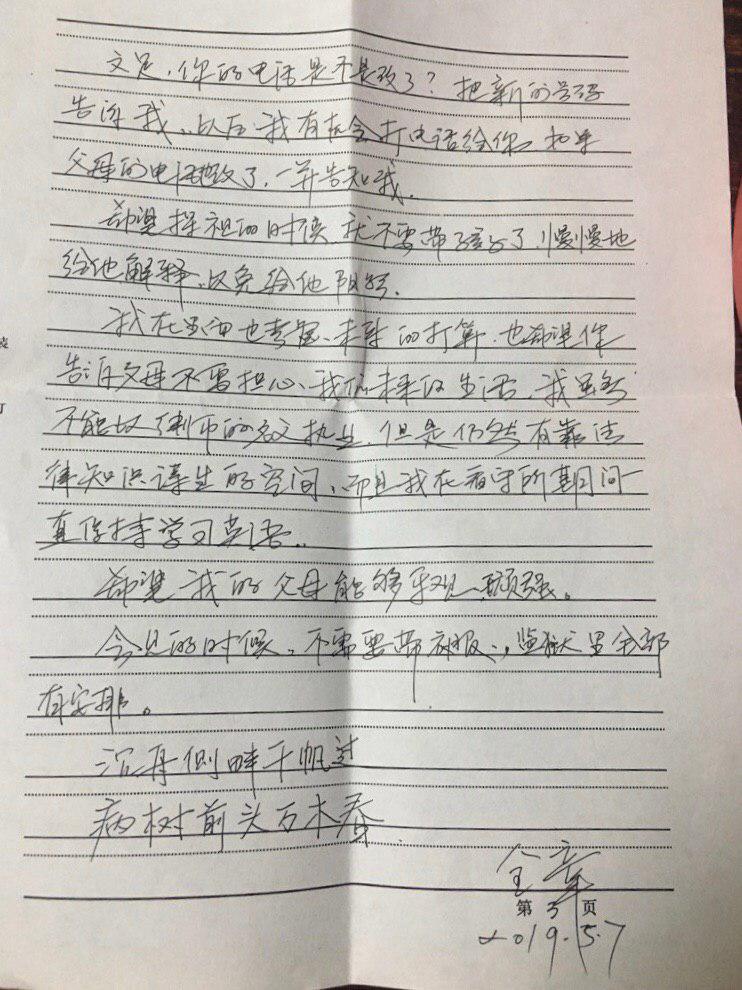 文足，你的电话是不是改了？把新的号码
告诉我，以后我有机会打电话给你，如果
父母的电话改了，一并告知我。
希望探视的时候，就不要带孩子了，慢慢地
给他解释，以免给他阴影。
我在里面也考虑未来的打算，也希望你
告诉父母不要担心我们未来的生活，我虽然
不能以律师的名义执业，但是仍然有靠法
律知识谋生的空间，而且我在看守所期间一
直保持学习英语。
希望我的父母能够乐观、顽强。
会见的时候，不需要带衣服，监狱里全部
有安排。
沉舟侧畔千帆过
病树前头万木春
全章
第 3 页
2019.5.7
装
订